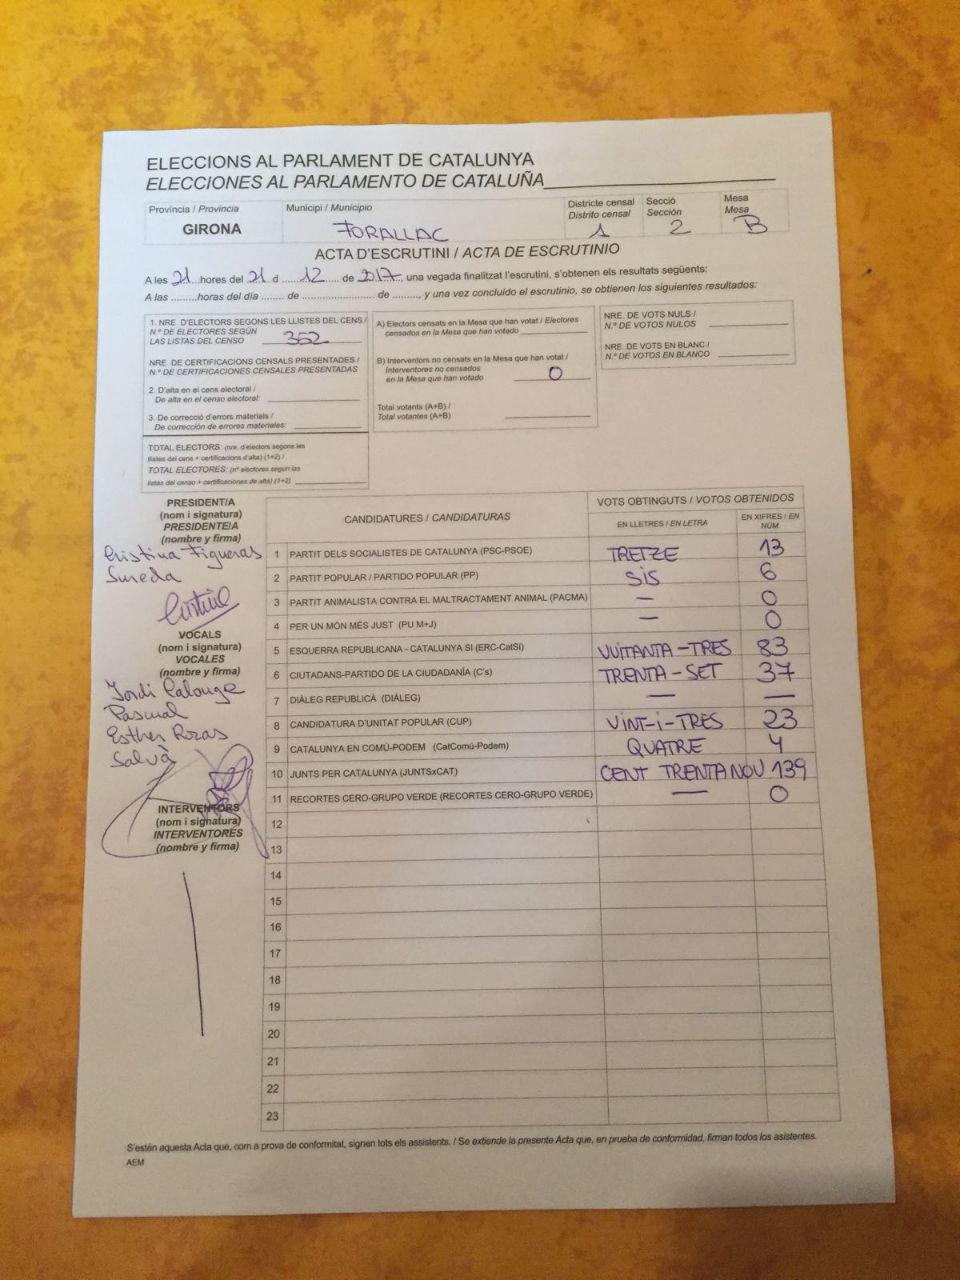 ELECCIONS AL PARLAMENT DE CATALUNYA
ELECCIONES AL PARLAMENTO DE CATALUÑA
Província / Provincia
GIRONA
Municipi / Municipio
FORALLAC
Districte censal
Distrito censal
1
Secció
Sección
2
Mesa
Mesa
B
ACTA D'ESCRUTINI / ACTA DE ESCRUTINIO
A les 21 hores del 21 d ....12.... de 2017, una vegada finalitzat l'escrutini, s'obtenen els resultats següents:
A las .........horas del día ....... de ....................... de ........, y una vez concluido el escrutinio, se obtienen los siguientes resultados:
1. NRE. D'ELECTORS SEGONS LES LLISTES DEL CENS /
N.º DE ELECTORES SEGÚN
LAS LISTAS DEL CENSO 352
NRE. DE CERTIFICACIONS CENSALS PRESENTADES /
N.º DE CERTIFICACIONES CENSALES PRESENTADAS
2. D'alta en el cens electoral /
De alta en el censo electoral:
3. De correcció d'errors materials /
De corrección de errores materiales:
TOTAL ELECTORS: (nre. d'electors segons les
llistes del cens + certificacions d'alta) (1+2) /
TOTAL ELECTORES: (nº electores según las
listas del censo + certificaciones de alta) (1+2)
A) Electors censats en la Mesa que han votat / Electores
censados en la Mesa que han votado
B) Interventors no censats en la Mesa que han votat /
Interventores no censados
en la Mesa que han votado 0
Total votants (A+B) /
Total votantes (A+B)
NRE. DE VOTS NULS /
N.º DE VOTOS NULOS
NRE. DE VOTS EN BLANC /
N.º DE VOTOS EN BLANCO
PRESIDENT/A
(nom i signatura)
PRESIDENTE/A
(nombre y firma)
Cristina Figueras
Sureda
Cristina
VOCALS
(nom i signatura)
VOCALES
(nombre y firma)
Jordi Calonge
Pascual
Esther Rozas
Salvà
INTERVENTORS
(nom i signatura)
INTERVENTORES
(nombre y firma)
CANDIDATURES / CANDIDATURAS
VOTS OBTINGUTS / VOTOS OBTENIDOS
EN LLETRES / EN LETRA
EN XIFRES / EN NÚM
1 PARTIT DELS SOCIALISTES DE CATALUNYA (PSC-PSOE) TRETZE 13
2 PARTIT POPULAR / PARTIDO POPULAR (PP) SIS 6
3 PARTIT ANIMALISTA CONTRA EL MALTRACTAMENT ANIMAL (PACMA) — 0
4 PER UN MÓN MÉS JUST (PU M+J) — 0
5 ESQUERRA REPUBLICANA - CATALUNYA SÍ (ERC-CatSí) VUITANTA-TRES 83
6 CIUTADANS-PARTIDO DE LA CIUDADANÍA (C's) TRENTA-SET 37
7 DIÀLEG REPUBLICÀ (DIÀLEG) — —
8 CANDIDATURA D'UNITAT POPULAR (CUP) VINT-I-TRES 23
9 CATALUNYA EN COMÚ-PODEM (CatComú-Podem) QUATRE 4
10 JUNTS PER CATALUNYA (JUNTSxCAT) CENT TRENTA NOU 139
11 RECORTES CERO-GRUPO VERDE (RECORTES CERO-GRUPO VERDE) — 0
12
13
14
15
16
17
18
19
20
21
22
23
S'estén aquesta Acta que, com a prova de conformitat, signen tots els assistents. / Se extiende la presente Acta que, en prueba de conformidad, firman todos los asistentes.
AEM